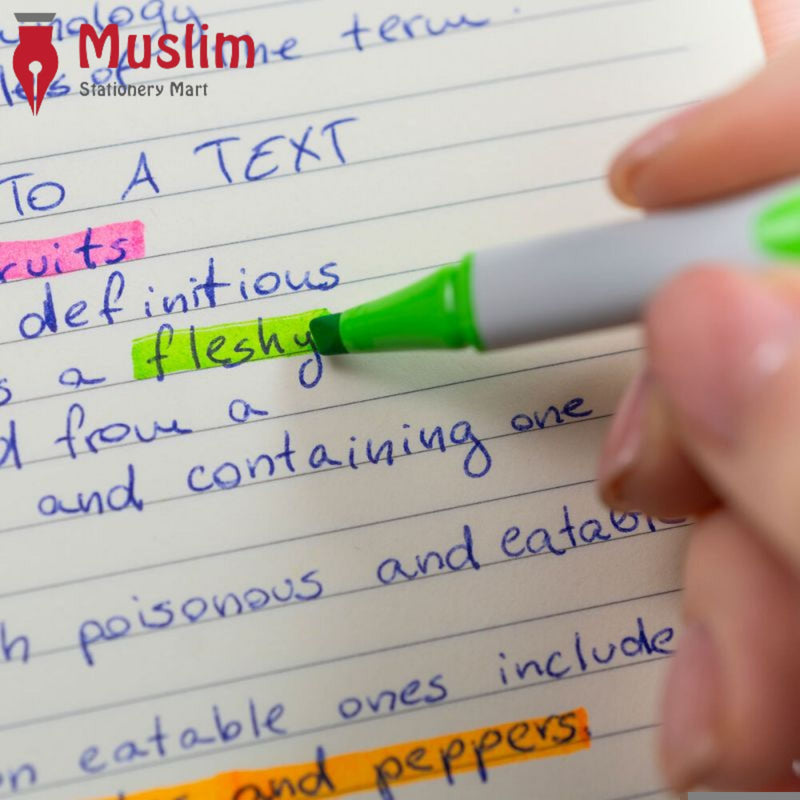 Muslim
Stationery Mart
term.
TO A TEXT
definitious
a fleshy
from a
and containing one
poisonous and eatable
eatable ones include
and peppers.